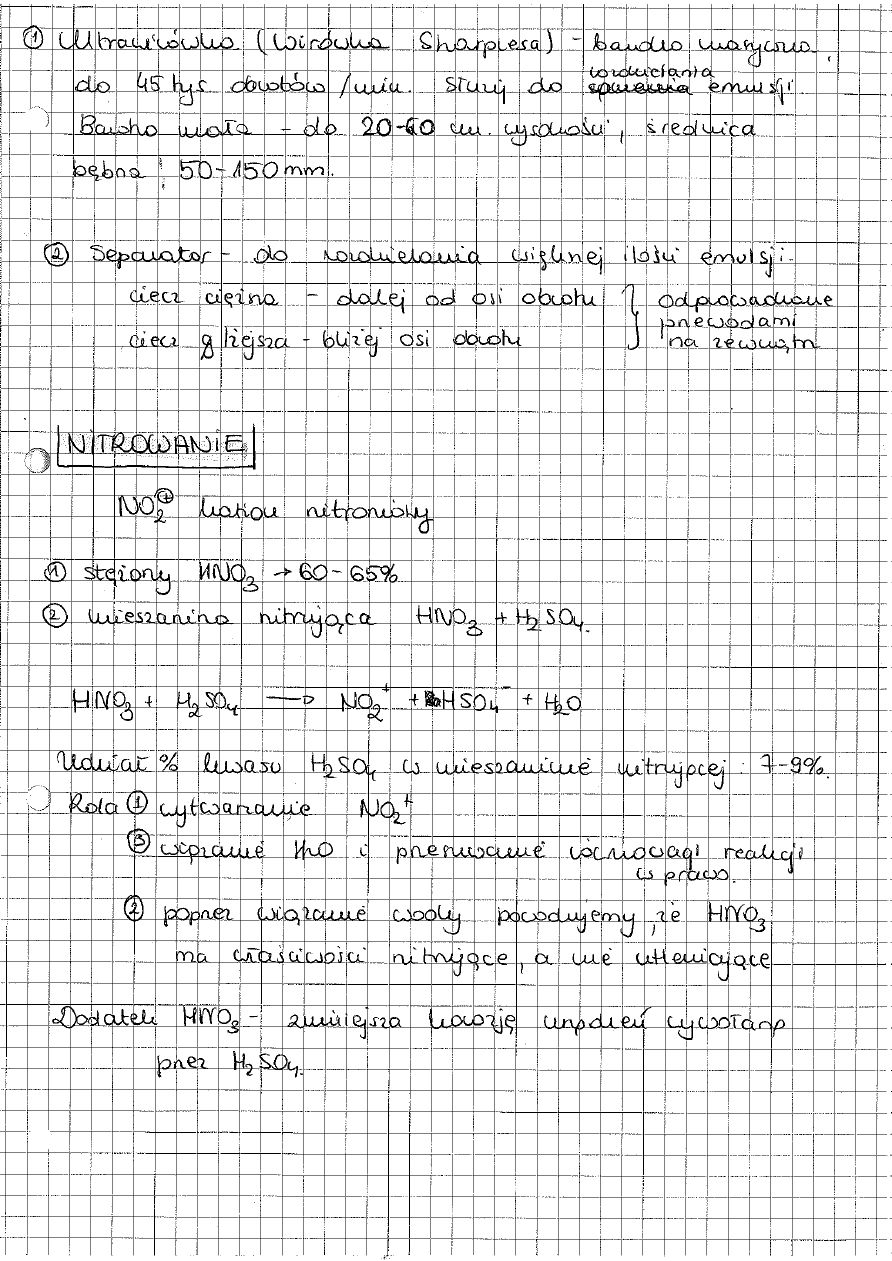 ① Ultrawirówka (wirówka Sharplesa) - bardzo
do 45 tys obrotów/min. Służy do rozdzielania emulsji.
Bardzo mała - do 20-60 cm. wysokości, średnica
bębna: 50-150 mm.
② Separator - do rozdzielania większej ilości emulsji.
ciecz cięższa - dalej od osi obrotu } odprowadzone
przewodami
ciecz lżejsza - bliżej osi obrotu na zewnątrz
NITROWANIE
NO₂⊕ kation nitroniowy
① stężony HNO₃ → 60-65%
② mieszanina nitrująca HNO₃ + H₂SO₄.
HNO₃ + H₂SO₄ → NO₂⁺ + HSO₄⁻ + H₂O
Udział % kwasu H₂SO₄ w mieszaninie nitrującej: 7-9%.
Rola ① wytwarzanie NO₂⁺
③ wiązanie H₂O i przesuwanie równowagi reakcji
w prawo.
② poprzez wiązanie wody powodujemy, że HNO₃
ma właściwości nitrujące, a nie utleniające
Dodatek HNO₃ - zmniejsza korozję urządzeń wywołaną
przez H₂SO₄.